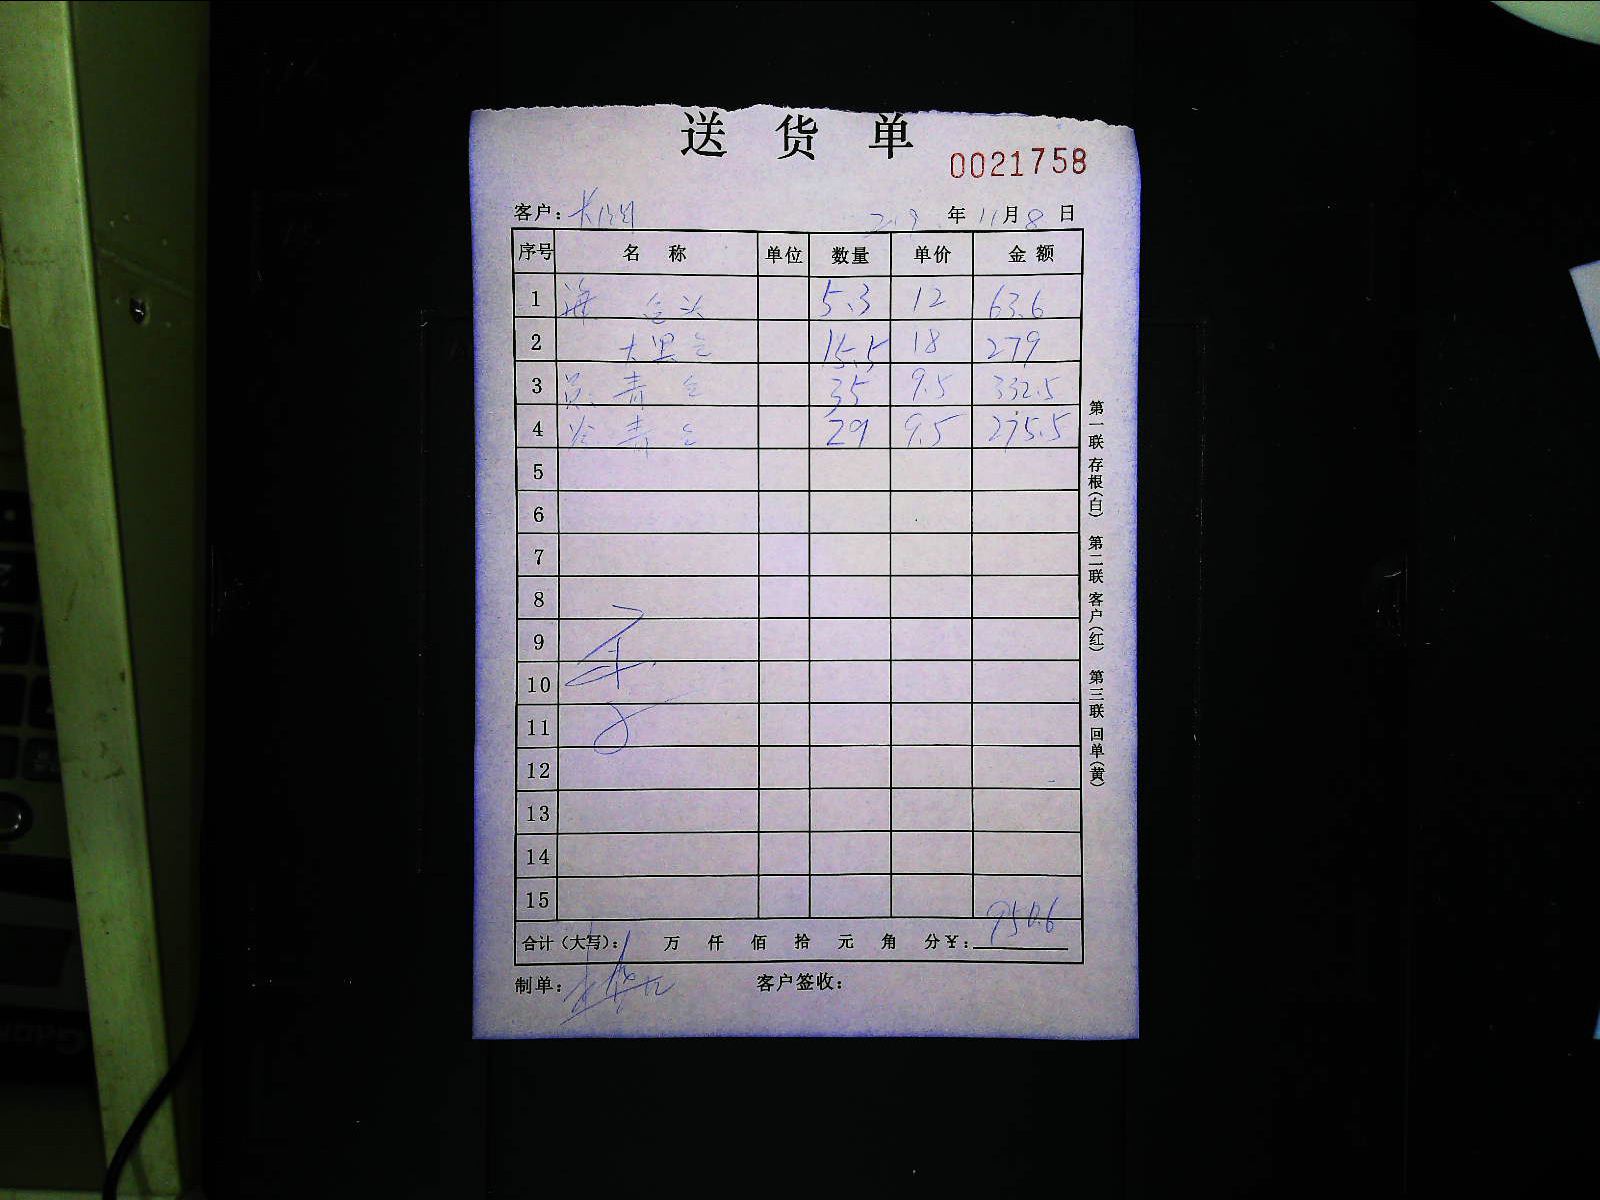 送 货 单
0021758
客户： 年 11 月 8 日
序号 名 称 单位 数量 单价 金 额
1 5.3 12 63.6
2 15.5 18 279
3 青 35 9.5 332.5
4 青 29 9.5 275.5
5
6
7
8
9
10
11
12
13
14
15
合计（大写）： 万 仟 佰 拾 元 角 分 ￥： 950.6
制单： 客户签收：
第一联 存根（白） 第二联 客户（红） 第三联 回单（黄）